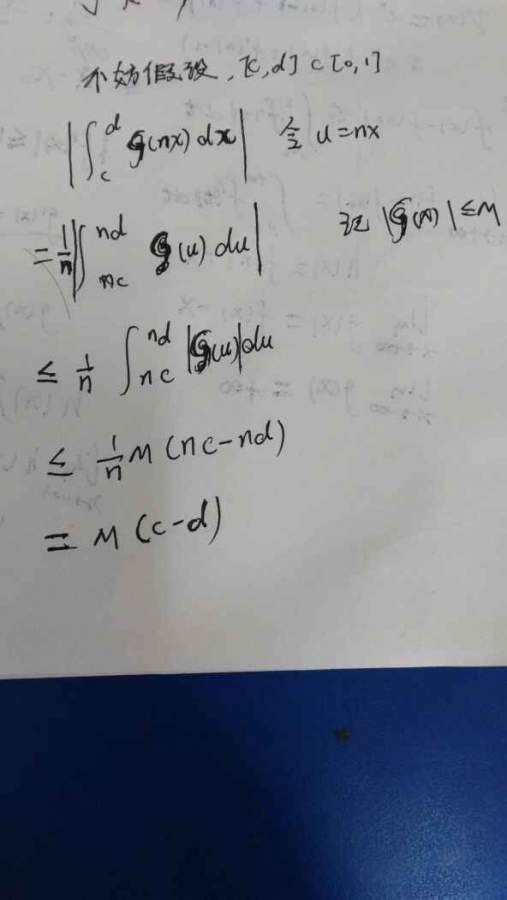 不妨假设, [c,d]⊂[0,1]
|∫_c^d g(nx)dx| 令 u=nx
=1/n|∫_{nc}^{nd} g(u)du| 记 |g(x)|≤M
≤ 1/n ∫_{nc}^{nd} |g(u)|du
≤ 1/n M(nc-nd)
= M(c-d)